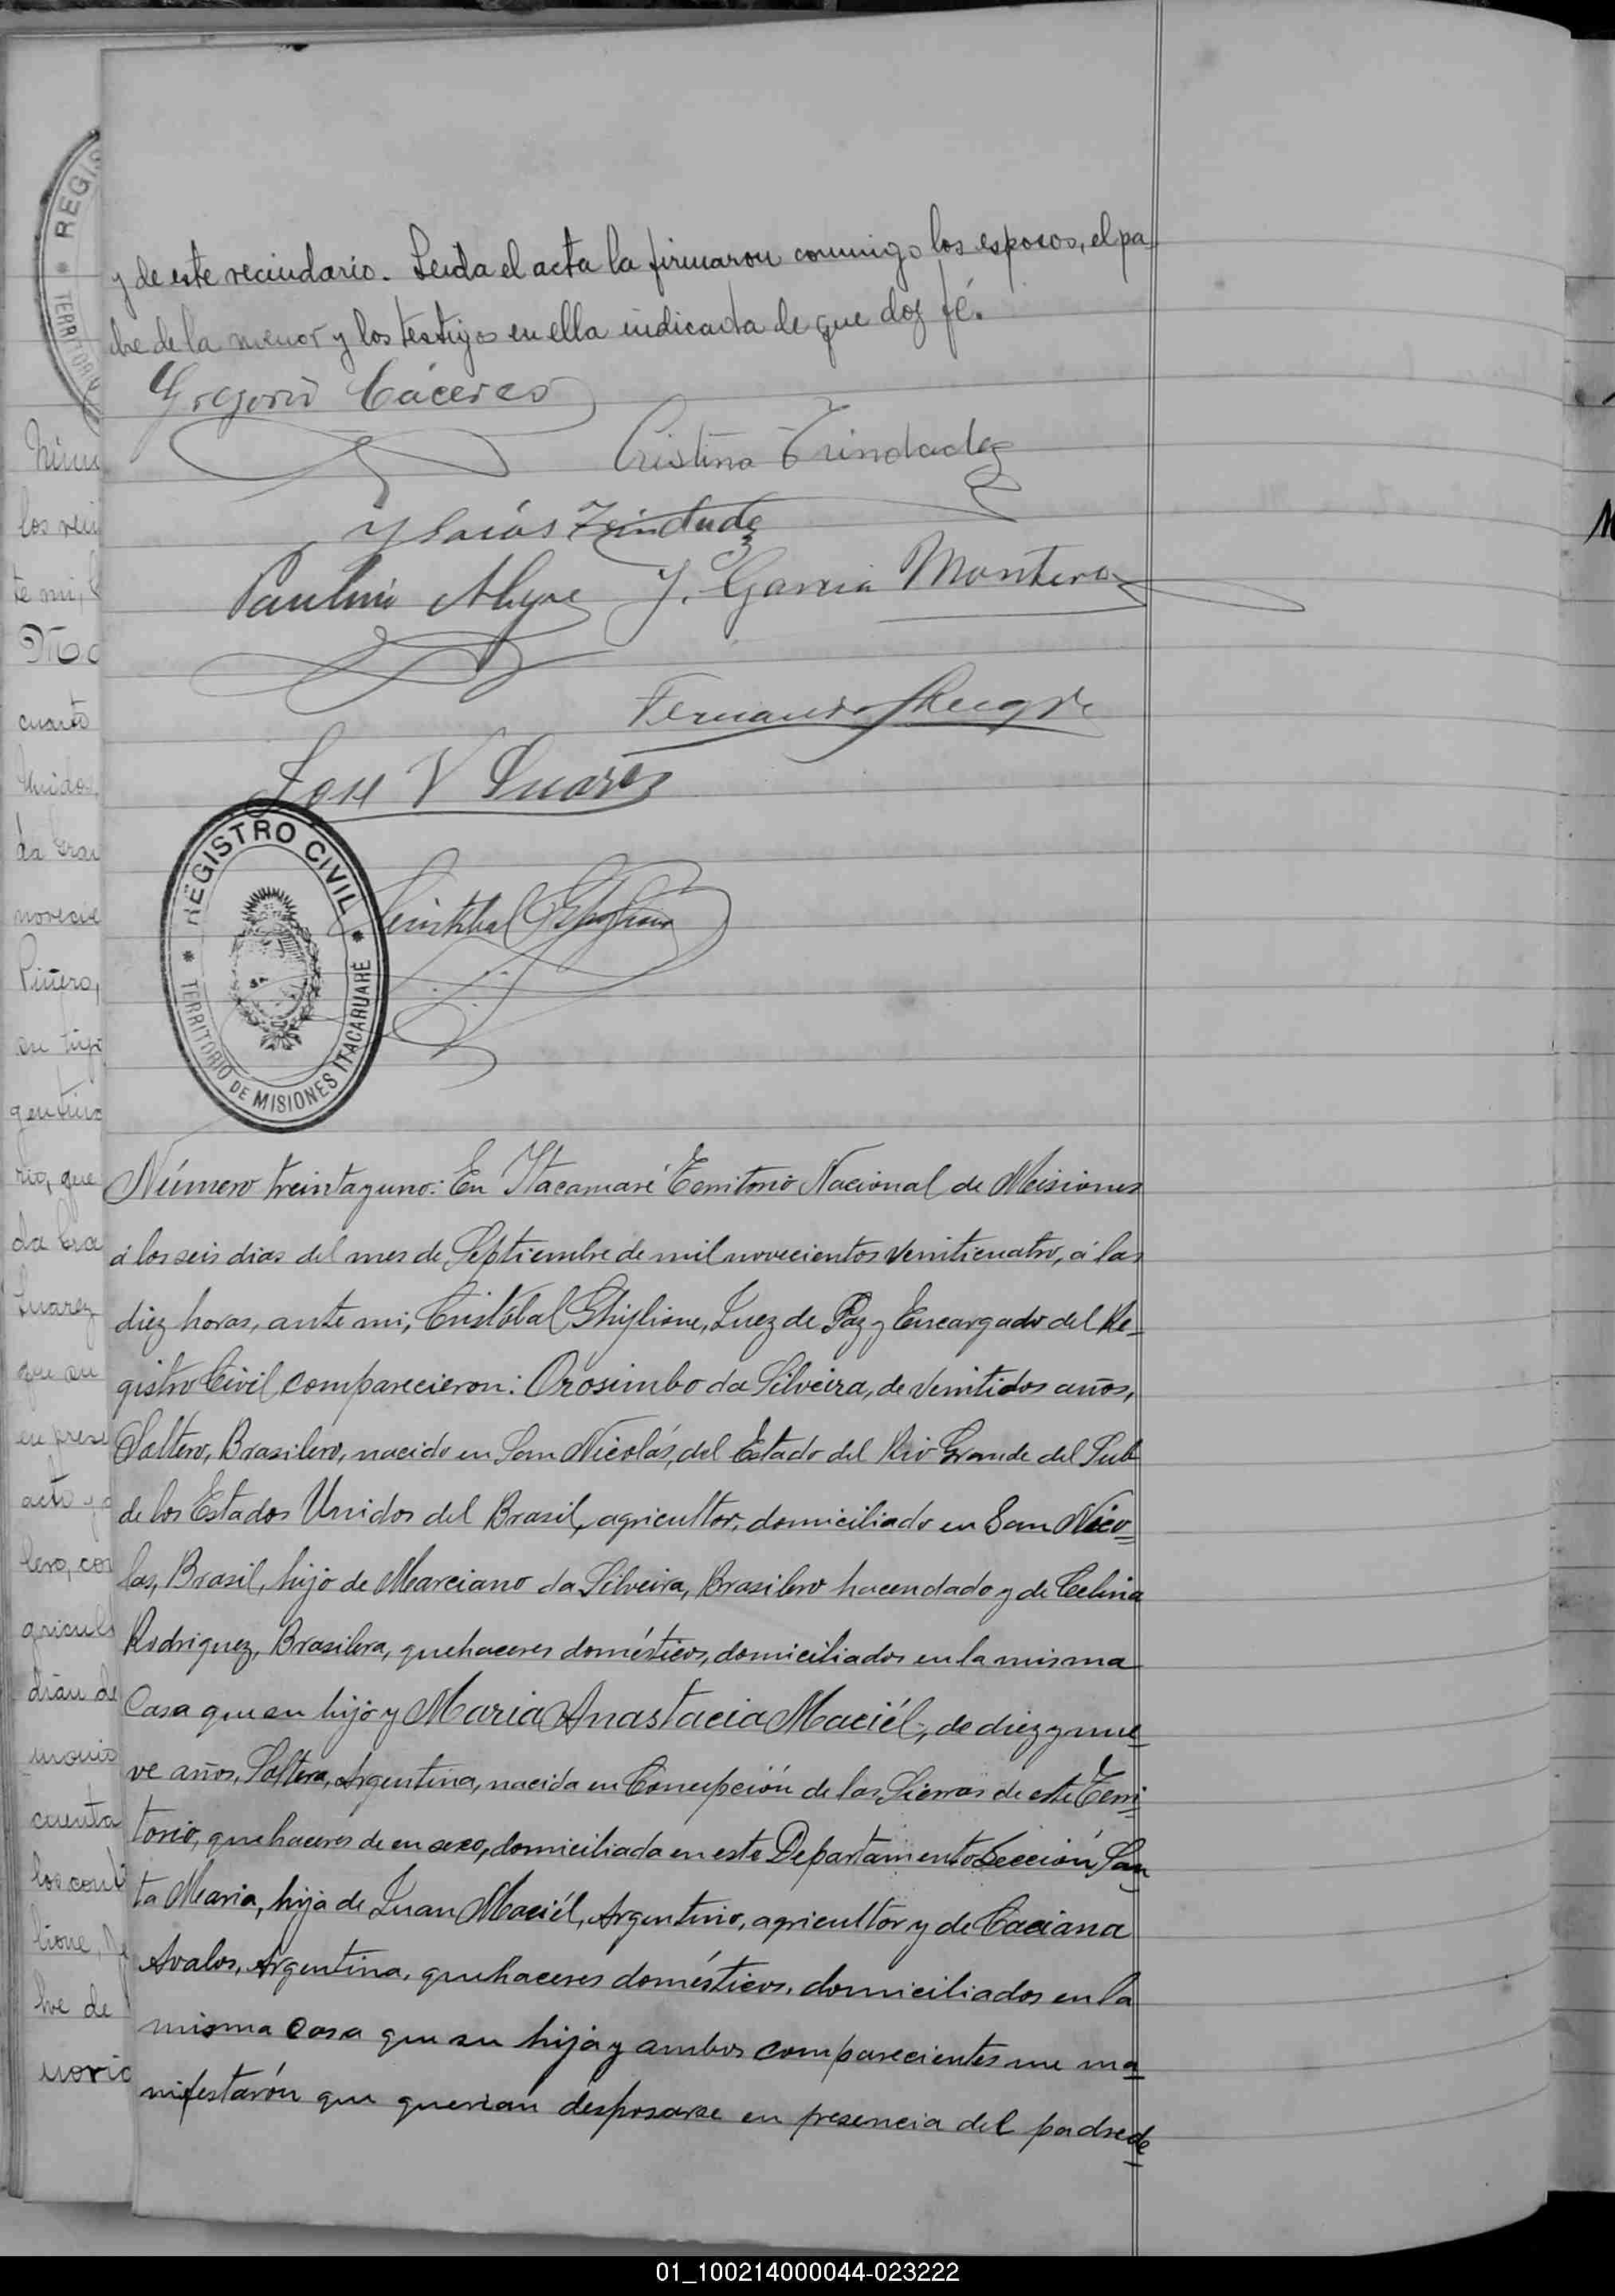 y de este vecindario. Leida el acta la firmaron conmigo los esposos, el pa-
dre de la menor y los testigos en ella indicada de que doy fé.
Gregorio Cáceres
Cristina Trindade
Ysaias Trindade
Paulino Alegre J. Garcia Montero
Fernando
Jose V Suarez
Cristobal Ghiglione
REGISTRO CIVIL
TERRITORIO DE MISIONES ITACARUARÉ
Número treintayuno: En Itacaruaré Territorio Nacional de Misiones
á los seis dias del mes de Septiembre de mil novecientos veniticuatro, á las
diez horas, ante mi, Cristóbal Ghiglione, Juez de Paz y Encargado del Re-
gistro Civil comparecieron: Orosimbo da Silveira, de venitidos años,
Soltero, Brasilero, nacido en San Nicolás, del Estado del Rio Grande del Sub
de los Estados Unidos del Brasil, agricultor, domiciliado en San Nico=
las, Brasil, hijo de Marciano da Silveira, Brasilero hacendado y de Celina
Rodriguez, Brasilera, quehaceres domésticos, domiciliados en la misma
Casa que su hijo y Maria Anastacia Maciél, de diez y nue=
ve años, Soltera, Argentina, nacida en Concepción de las Sierras de este Terri=
torio, quehaceres de su sexo, domiciliada en este Departamento Sección San
ta Maria, hija de Juan Maciél, Argentino, agricultor y de Caciana
Avalos, Argentina, quehaceres domésticos, domiciliados en la
misma Casa que su hija y ambos comparecientes me ma
nifestarón que querian desposarse en presencia del padre de
01_100214000044-023222